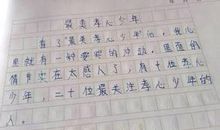 最美孝心少年
看了“最美孝心少年”后，我心
里就有一种要哭的冲动，里面的
情节实在太感人了，有十位孝心
少年，二十位最关注孝心少年的
人。